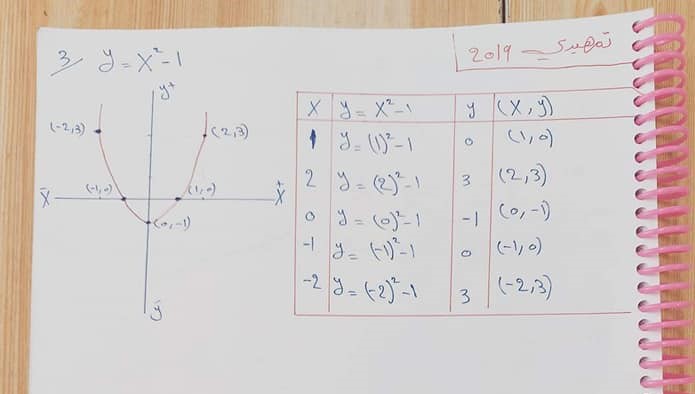 3/ y = x² - 1
تمهيدي 2019
y+
(-2,3)
(2,3)
(-1,0)
(1,0)
x̄
x⁺
(0,-1)
ȳ
x | y = x² - 1 | y | (x, y)
1 | y = (1)² - 1 | 0 | (1,0)
2 | y = (2)² - 1 | 3 | (2,3)
0 | y = (0)² - 1 | -1 | (0,-1)
-1 | y = (-1)² - 1 | 0 | (-1,0)
-2 | y = (-2)² - 1 | 3 | (-2,3)